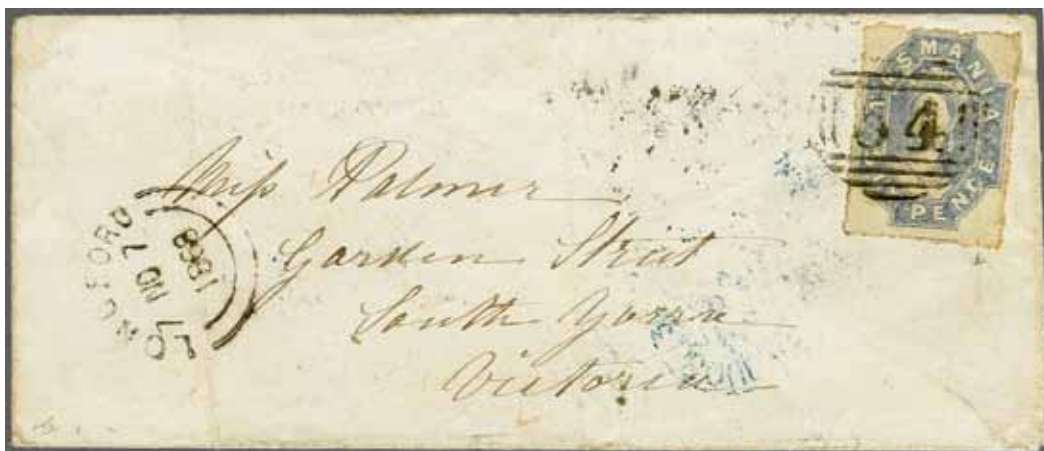 TASMANIA
PENCE
64
Miss Palmer
Garden Street
South Yarra
Victoria
LONGFORD
NO 7
1868